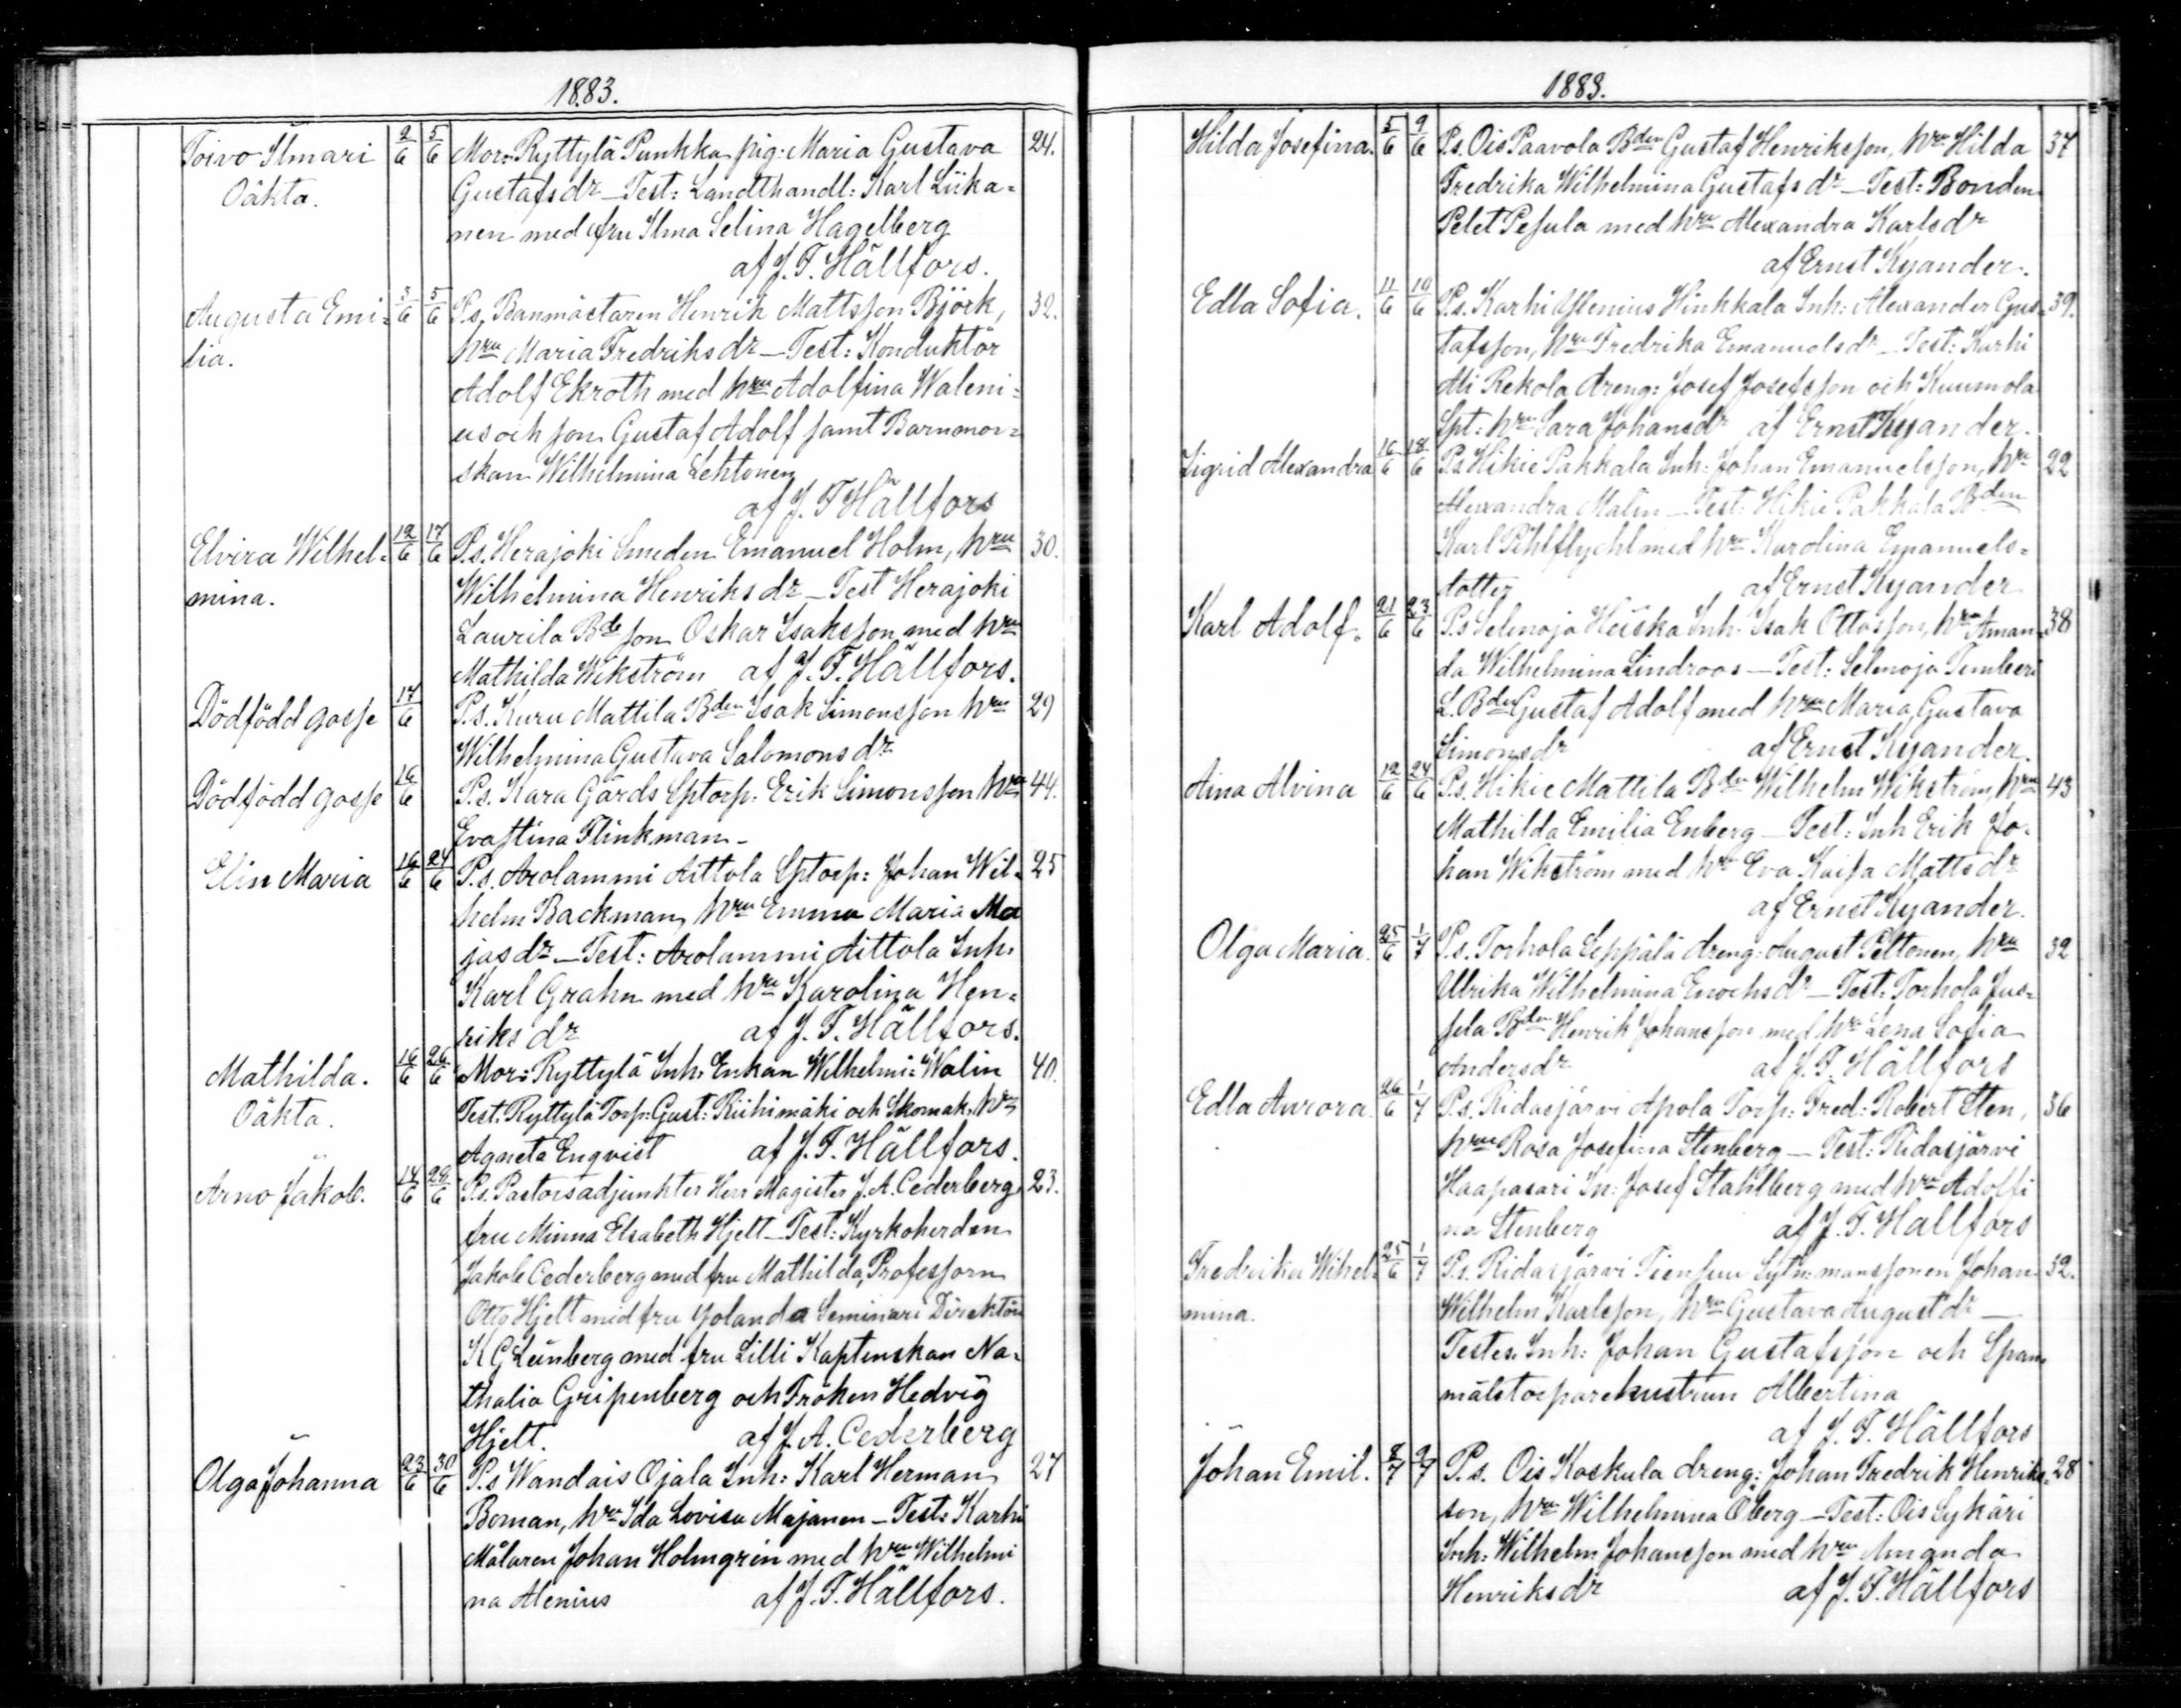 1883.
Toivo Ilmari 2/6 5/6 Mor: Ryttylä Punkka pig: Maria Gustava 24.
Oäkta. Gustafsdr – Test: Landthandl: Karl Liika-
nen med fru Ilma Selina Hagelberg
af J. F. Hällfors.
Augusta Emi- 3/6 5/6 P.s. Banmästaren Henrik Mattsson Björk, 32.
lia. hru Maria Fredriksdr – Test: Konduktör
Adolf Ekroth med hru Adolfina Waleni-
us och son Gustaf Adolf samt Barnmor-
skan Wilhelmina Lehtonen
af J. F. Hällfors
Elvira Wilhel- 12/6 17/6 P.s. Herajoki Smeden Emanuel Holm, hru 30.
mina. Wilhelmina Henriksdr – Test Herajoki
Laurila Bde son Oskar Isaksson med hru
Mathilda Wikström af J. F. Hällfors.
Dödfödd gosse 17/6 P.s. Kuru Mattila Bden Isak Simonsson hru 29
Wilhelmina Gustava Salomonsdr
Dödfödd gosse 16/6 P.s. Kara Gårds Sptorp. Erik Simonsson hru 44.
Eva Stina Flinkman –
Elin Maria 16/6 24/6 P.s. Arolammi Aittola Sptorp: Johan Wil- 25
helm Backman, hru Emma Maria Ma
jasdr – Test: Arolammi Aittola Inh.
Karl Grahn med hru Karolina Hen-
riksdr af J. F. Hällfors.
Mathilda. 16/6 26/6 Mor: Ryttylä Inh. Enkan Wilhelmi: Walin 40.
Oäkta. Test. Ryttylä Torp: Gust: Riihimäki och Skomak. hru
Agneta Enqvist af J. F. Hällfors.
Arno Jakob. 14/6 29/6 P.s. Pastorsadjunkten Herr Magister J. A. Cederberg, 23.
fru Minna Elsabeth Hjelt – Test: Kyrkoherden
Jakob Cederberg med fru Mathilda, Professorn
Otto Hjelt med fru Yolanda Seminarie Direktör
K G Leinberg med fru Lilli Kaptenskan Na-
thalia Gripenberg och Fröken Hedvig
Hjelt. af J. A. Cederberg
Olga Johanna 23/6 30/6 P.s Wandais Ojala Inh: Karl Herman 27
Boman, hru Ida Lovisa Majanen – Test: Karhi
Målaren Johan Holmgrén med hru Wilhelmi
na Alenius af J. F. Hällfors.
1883.
Hilda Josefina. 5/6 9/6 P.s. Ois Paavola Bden Gustaf Henriksson, hru Hilda 37
Fredrika Wilhelmina Gustafsdr – Test: Bonden
Pelet Pesula med hru Alexandra Karlsdr
af Ernst Kyander.
Edla Sofia. 11/6 19/6 P.s. Karhi Hinkkala Inh: Alexander Gus- 39.
tafsson, hru Fredrika Emanuelsdr – Test: Karhi
Ali Rekola dreng: Josef Josefsson och Kuumola
Spt: hru Sara Johansdr af Ernst Kyander.
Sigrid Alexandra 16/6 18/6 P.s. Hikie Pakkala Inh: Johan Emanuelsson, hru 22
Alexandra Malin – Test: Hikie Pakkala Bden
Karl Pihlflycht med hru Karolina Emanuels-
dotter af Ernst Kyander
Karl Adolf. 21/6 23/6 P.s Selenoja Heiska Inh. Isak Ottosson, hru Aman- 38
da Wilhelmina Lindroos – Test: Selenoja Temberi
L. Bden Gustaf Adolf med hru Maria Gustava
Simonsdr af Ernst Kyander.
Aina Alvina 12/6 24/6 P.s. Hikie Mattila Bden Wilhelm Wikström, hru 43
Mathilda Emilia Enberg – Test: Inh Erik Jo-
han Wikström med hru Eva Kaisa Mattsdr
af Ernst Kyander.
Olga Maria. 25/6 1/7 P.s. Torhola Seppälä dreng: August Peltonen, hru 32
Ulrika Wilhelmina Enochsdr – Test: Torhola Jus-
sila Bden Henrik Johansson med hru Lena Sofia
Andersdr af J. F. Hällfors
Edla Aurora 26/6 1/7 P.s. Ridasjärvi Apola Torp: Fred: Robert Sten, 36
hru Rosa Josefina Stenberg – Test: Ridasjärvi
Haapasari In: Josef Stahlberg med hru Adolfi
na Stenberg af J. F. Hällfors
Fredrika Wihel- 25/6 1/7 P.s. Ridasjärvi Tiensuu Sytn:manssonen Johan 32.
mina. Wilhelm Karlsson, hru Gustava Augustdr –
Testes. Inh: Johan Gustafsson och Span
målstorparehustrun Albertina
af J. F. Hällfors
Johan Emil. 8/7 9/7 P.s. Ois Koskula dreng: Johan Fredrik Henriks- 28
son, hru Wilhelmina Öberg – Test: Ois Sykäri
Inh: Wilhelm Johansson med hru Amanda
Henriksdr af J. F. Hällfors